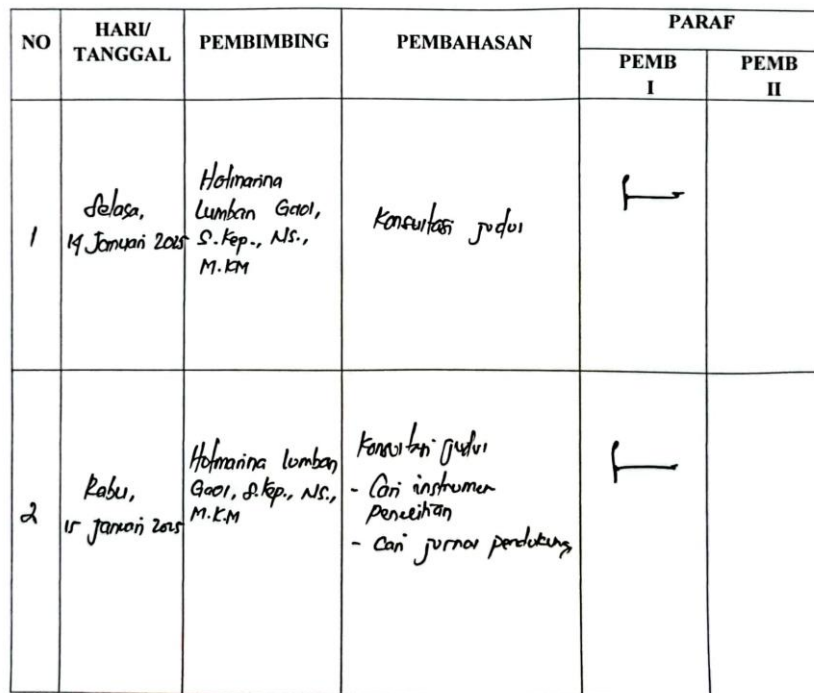 NO
HARI/
TANGGAL
PEMBIMBING
PEMBAHASAN
PARAF
PEMB
I
PEMB
II
1
Selasa,
14 Januari 2025
Hotmarina
Lumban Gaol,
S.Kep., Ns.,
M.KM
Konsultasi judul
2
Rabu,
15 Januari 2025
Hotmarina Lumban
Gaol, S.Kep., Ns.,
M.K.M
Konsultasi judul
- Cari instrumen
penelitian
- Cari jurnal pendukung